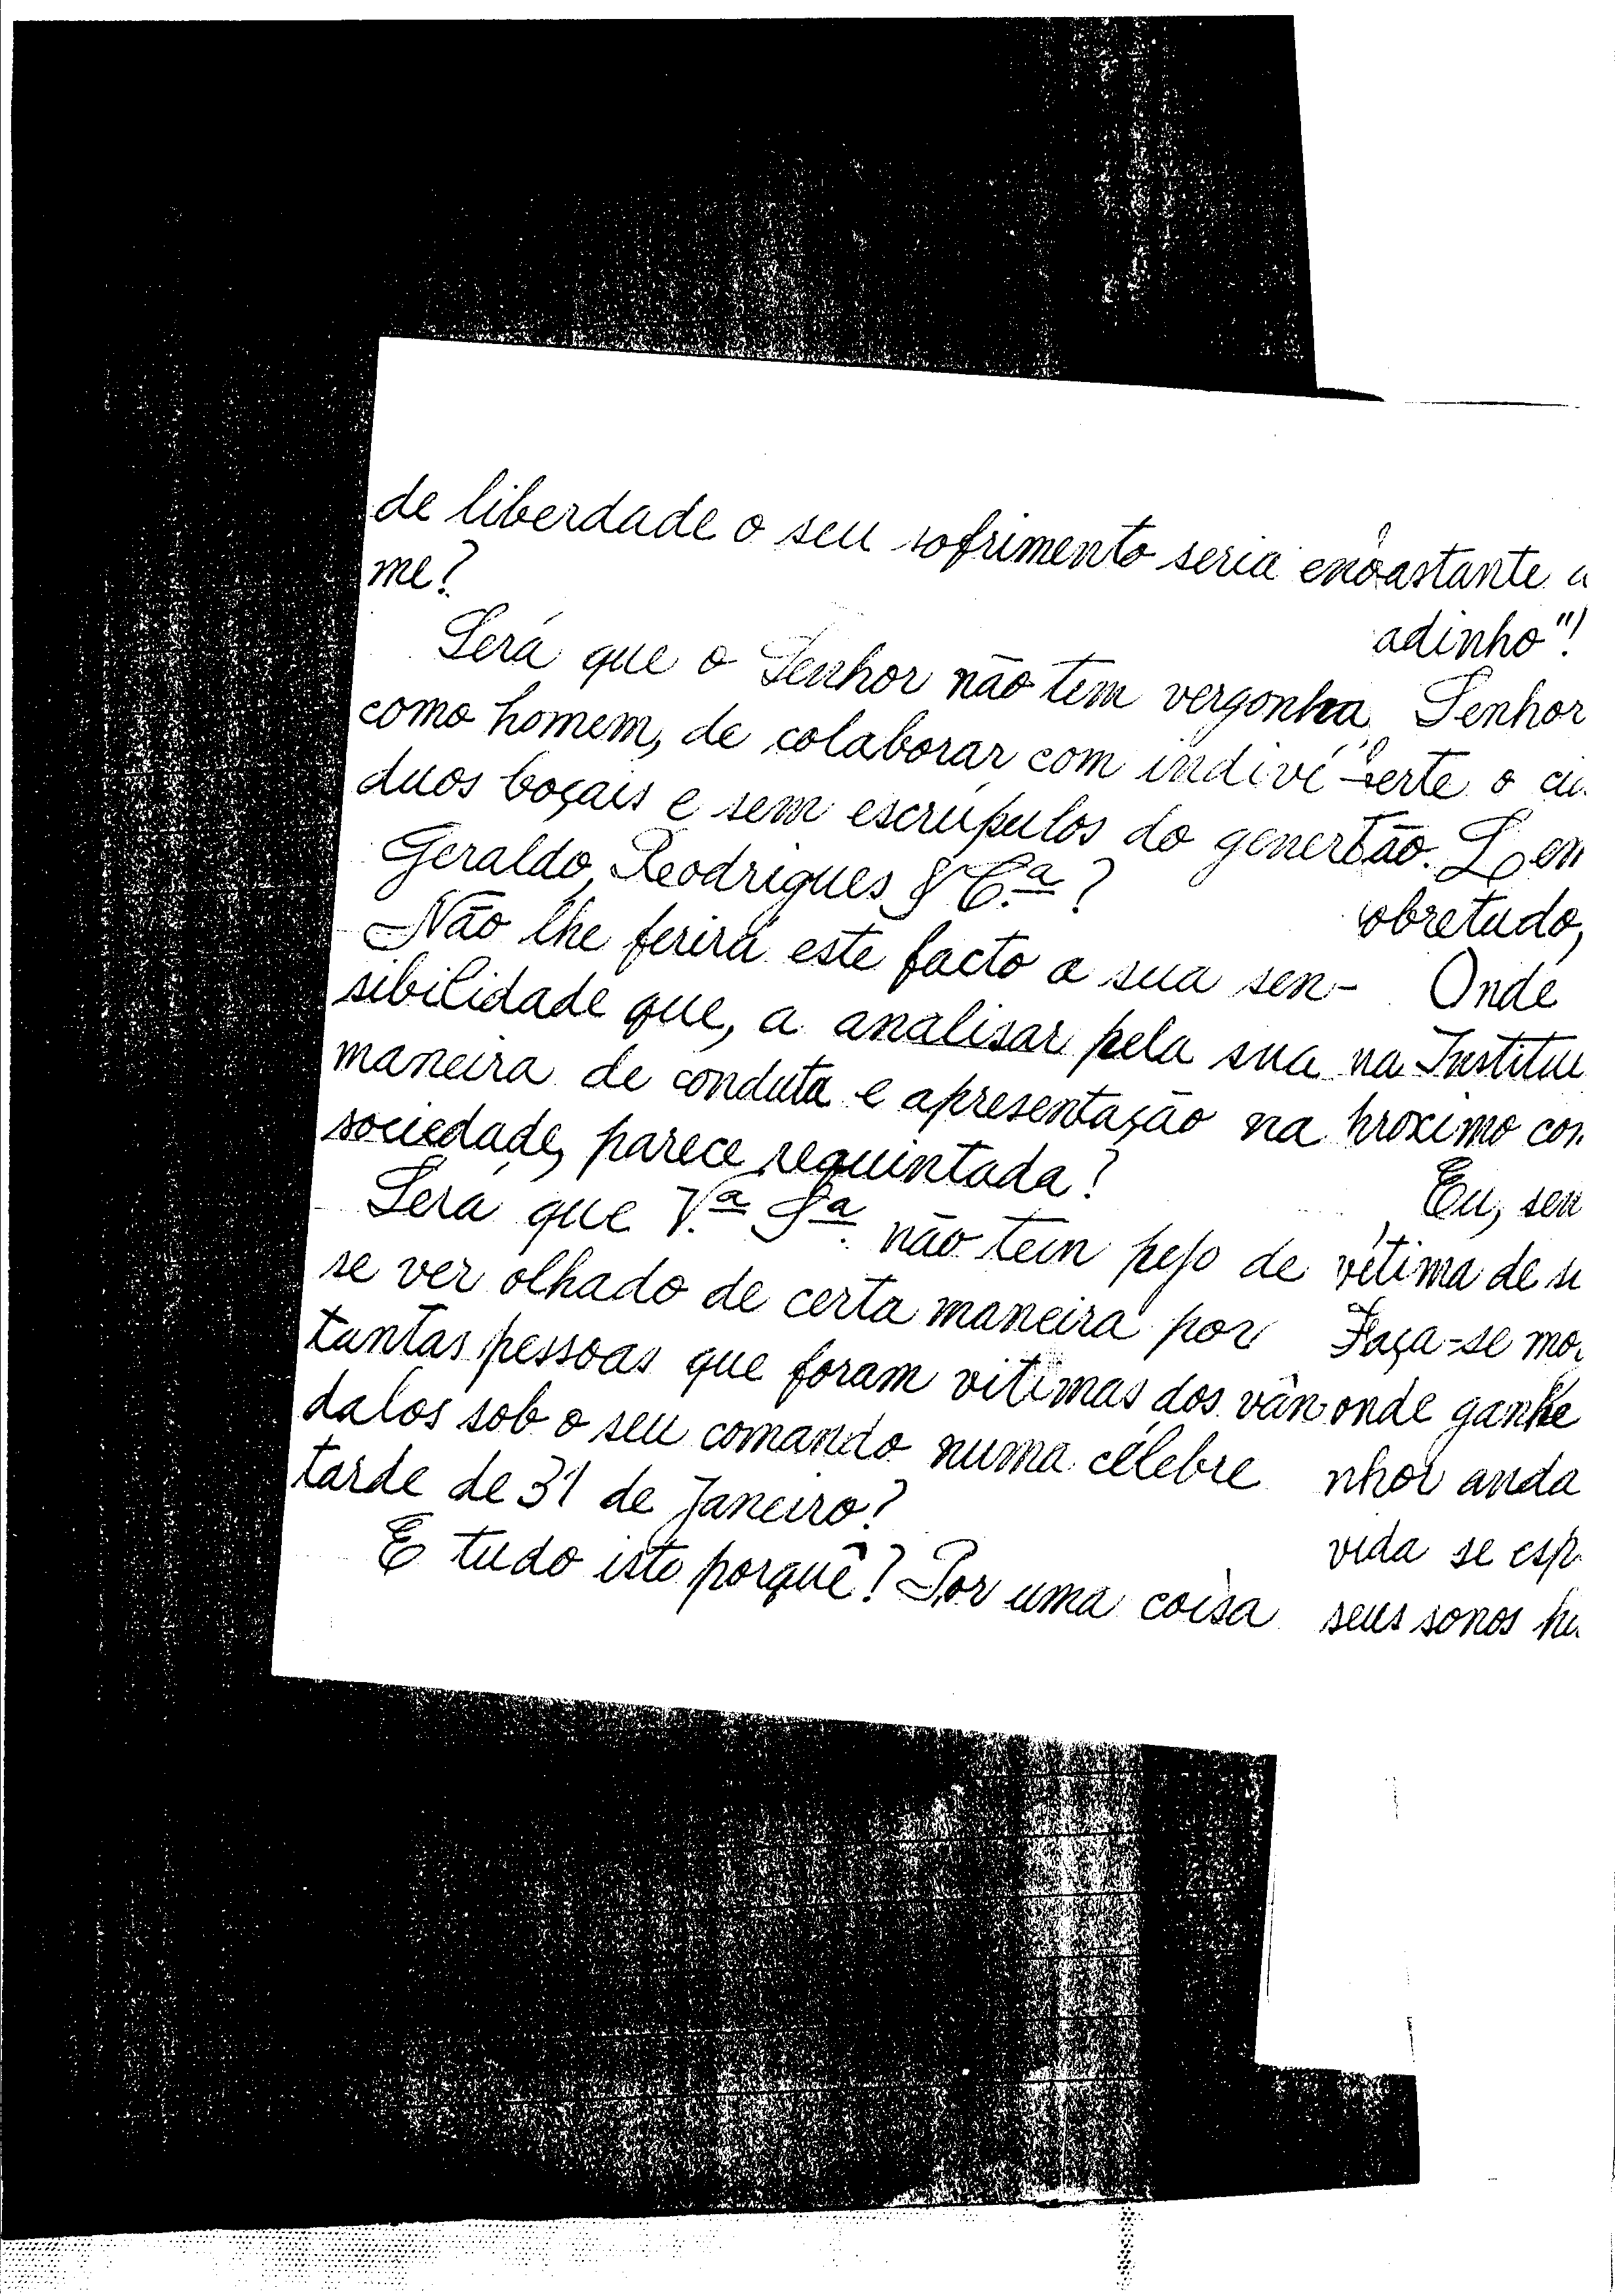 de liberdade o seu sofrimento seria enor
me?
Será que o Senhor não tem vergonha,
como homem, de colaborar com indiví-
duos boçais e sem escrúpulos do gener
Geraldo, Rodrigues & C.ª?
Não lhe ferirá este facto a sua sen-
sibilidade que, a analisar pela sua
maneira de conduta e apresentação na
sociedade, parece requintada?
Será que V.ª S.ª não tem pejo de
se ver olhado de certa maneira por
tantas pessoas que foram vitimas dos vân
dalos sob o seu comando numa célebre
tarde de 31 de Janeiro?
E tudo isto porquê? Por uma coisa
bastante
adinho"!
Senhor
erte o
tão.
obretudo,
Onde
na Institui
proximo con
Eu, sen
vitima de
Faça-se
onde ganhe
nhor anda
vida se esp
seus sonos